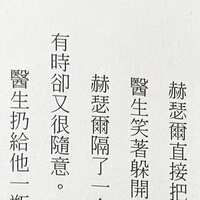 赫瑟爾直接把
醫生笑著躲開
赫瑟爾隔了一
有時卻又很隨意。
醫生扔給他一瓶